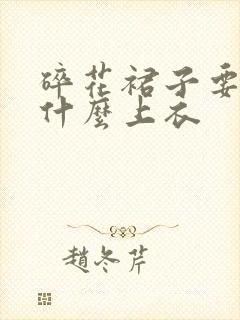 碎花裙子要
什麼上衣
趙冬芹